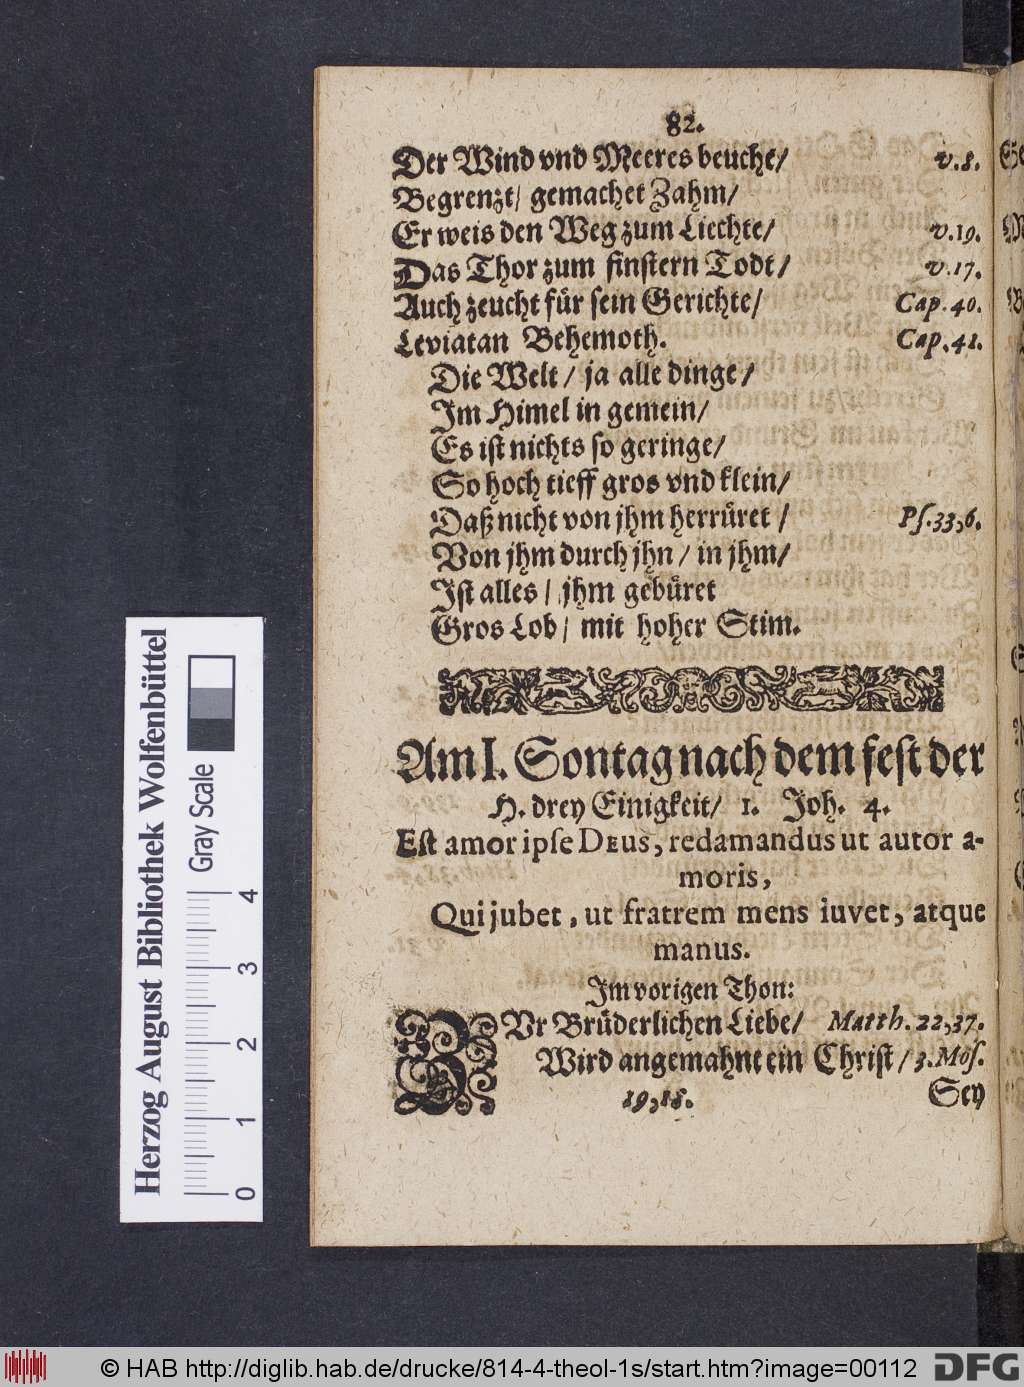 82.
Der Wind vnd Meeres beucht/ v.8.
Begrenzt/ gemachet Zahm/
Er weis den Weg zum Liechte/ v.19.
Das Thor zum finstern Todt/ v.17.
Auch zeucht für sein Gerichte/ Cap.40.
Leviatan Behemoth. Cap.41.
Die Welt/ ja alle dinge/
Im Himel in gemein/
Es ist nichts so geringe/
So hoch tieff gros vnd klein/
Daß nicht von jhm herrüret/ Ps.33,6.
Von jhm durch jhn/ in jhm/
Ist alles/ jhm gebüret
Gros Lob/ mit hoher Stim.
Am I. Sontag nach dem fest der
H. drey Einigkeit/ 1. Joh. 4.
Est amor ipse Deus, redamandus ut autor a-
moris,
Qui jubet, ut fratrem mens iuvet, atque
manus.
Im vorigen Thon:
ZVr Brüderlichen Liebe/ Matth. 22,37.
Wird angemahnt ein Christ/ 3. Mos.
19,18. Sey
Herzog August Bibliothek Wolfenbüttel
Gray Scale
0 1 2 3 4
© HAB http://diglib.hab.de/drucke/814-4-theol-1s/start.htm?image=00112
DFG